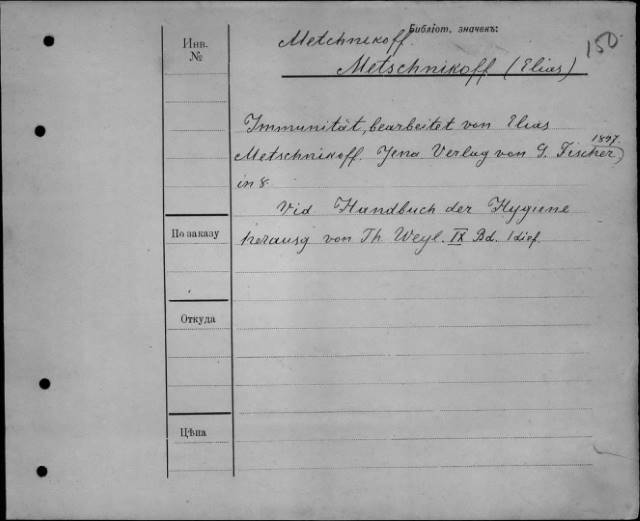 Библіот. значекъ:
150.
Инв.
№
Metchnikoff.
Metschnikoff (Elias)
Immunität, bearbeitet von Elias
Metschnikoff. Jena Verlag von G. Fischer,
1897.
in 8.
Vid Handbuch der Hygiene
herausg von Th. Weyl. IX Bd. 1 lief.
По заказу
Откуда
Цѣна